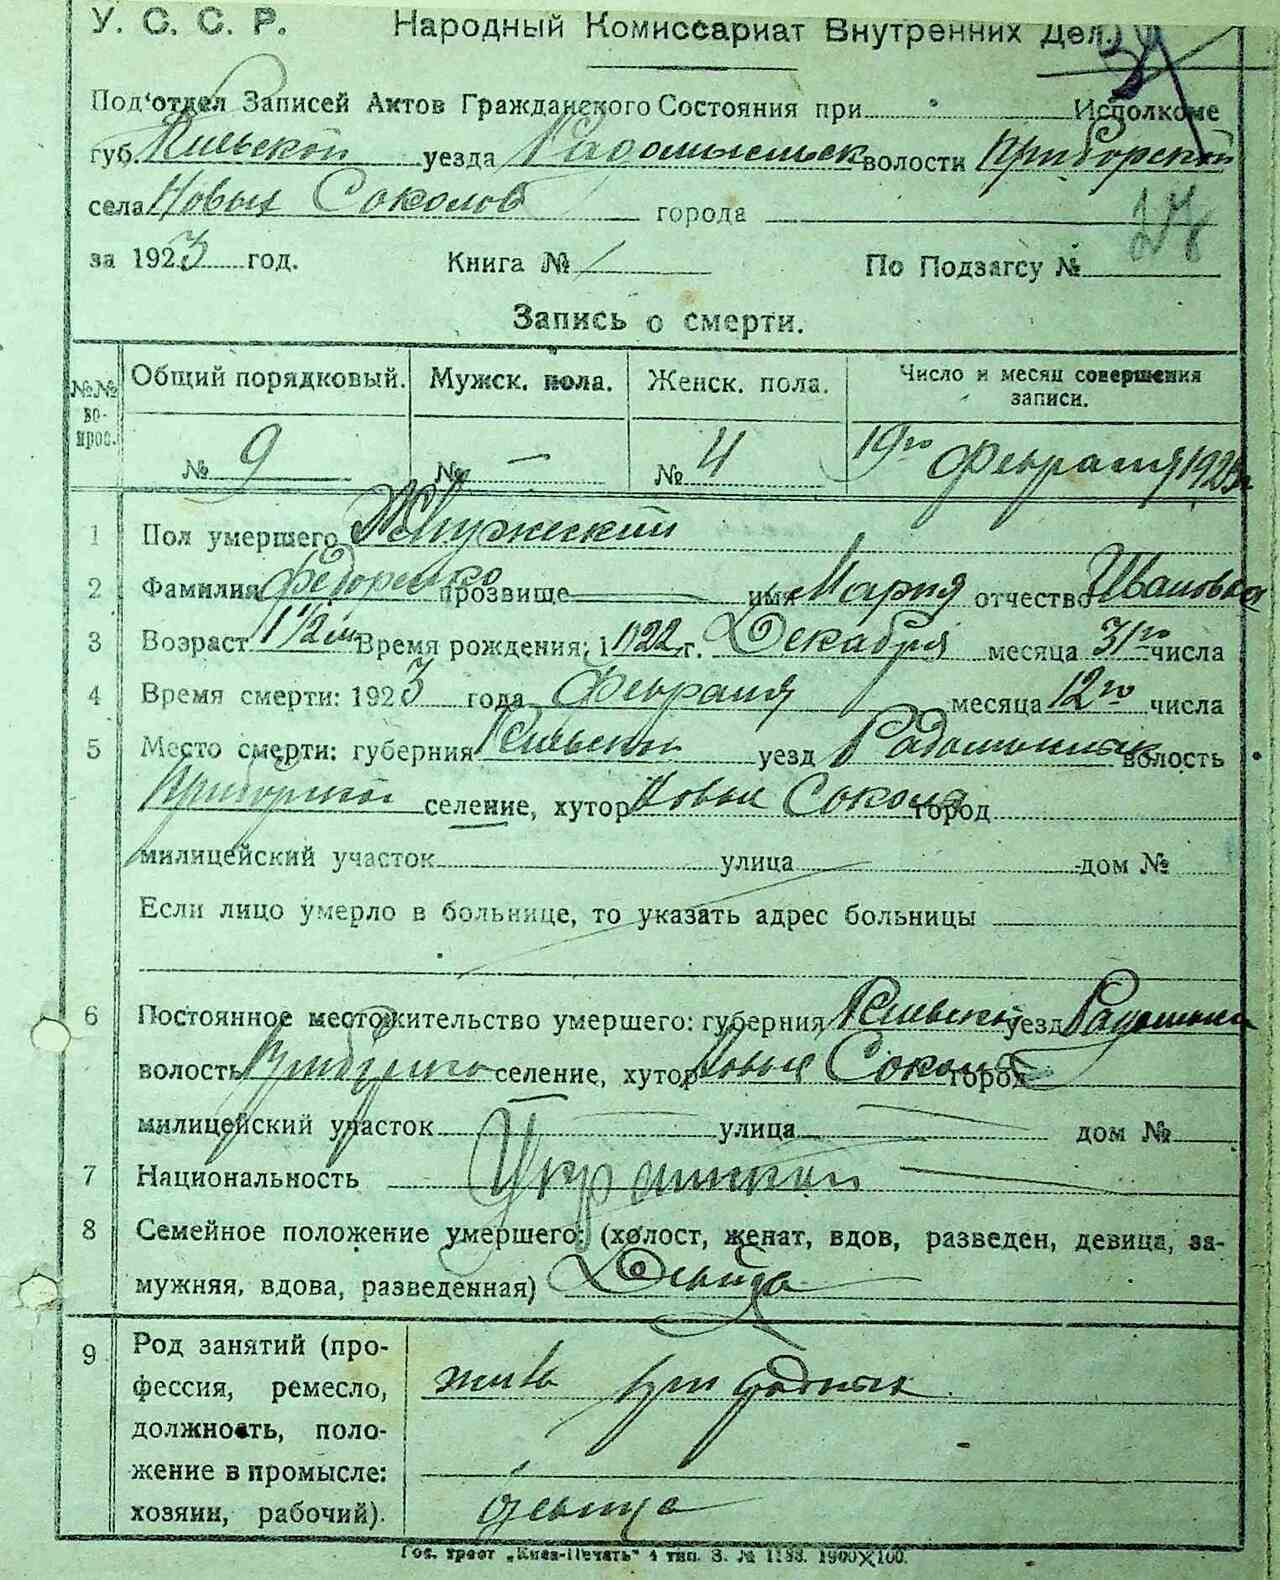 У. С. С. Р. Народный Комиссариат Внутренних Дел.
Под‘отдел Записей Актов Гражданского Состояния при Исполкоме
губ. Киевской уезда Радомысльск волости Приборской
села Новых Соколов города
за 1923 год. Книга № 1 По Подзагсу № 27
Запись о смерти.
№№ вопрос. Общий порядковый. Мужск. пола. Женск. пола. Число и месяц совершения записи.
№ 9 № — № 4 19го Февраля 1923г
1 Пол умершего
2 Фамилия Федоренко прозвище имя Мария отчество Ивановна
3 Возраст 1 1/2 м Время рождения: 1922 г. Декабря месяца 31го числа
4 Время смерти: 1923 года Февраля месяца 12го числа
5 Место смерти: губерния Киевск уезд Радомысльск волость
Приборской селение, хутор Новые Соколы город
милицейский участок улица дом №
Если лицо умерло в больнице, то указать адрес больницы
6 Постоянное местожительство умершего: губерния Киевской уезд
волость селение, хутор Новые Соколы город
милицейский участок улица дом №
7 Национальность
8 Семейное положение умершего: (холост, женат, вдов, разведен, девица, за-
мужняя, вдова, разведенная) Девица
9 Род занятий (про-
фессия, ремесло,
должность, поло-
жение в промысле:
хозяин, рабочий).
при
Гос. трест „Киев-Печать“ 4 тип. З. № 1193. 1900×100.